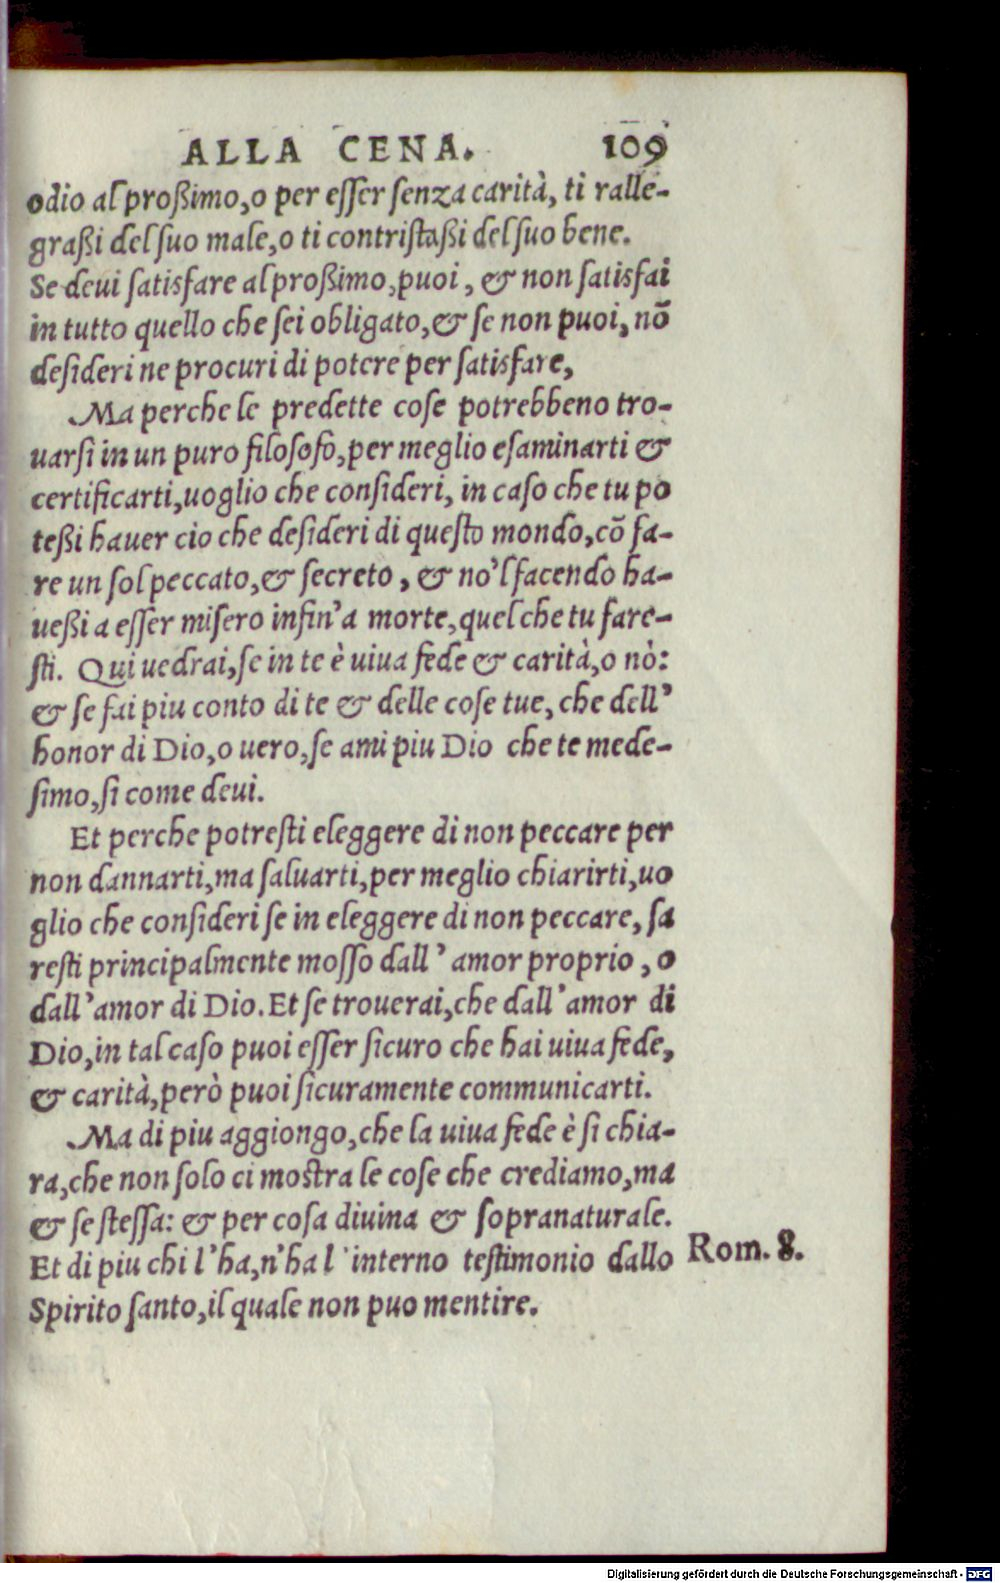 ALLA CENA. 109
odio al proßimo, o per eſſer ſenza carità, ti ralle-
graßi del ſuo male, o ti contriſtaßi del ſuo bene.
Se deui ſatisfare al proßimo, puoi, & non ſatisfai
in tutto quello che ſei obligato, & ſe non puoi, nō
deſideri ne procuri di potere per ſatisfare,
Ma perche le predette coſe potrebbeno tro-
uarſi in un puro filoſofo, per meglio eſaminarti &
certificarti, uoglio che conſideri, in caſo che tu po
teßi hauer cio che deſideri di queſto mondo, cō fa-
re un ſol peccato, & ſecreto, & no'l facendo ha-
ueßi a eſſer miſero infin'a morte, quel che tu fare-
ſti. Qui uedrai, ſe in te è uiua fede & carità, o nò:
& ſe fai piu conto di te & delle coſe tue, che dell'
honor di Dio, o uero, ſe ami piu Dio che te mede-
ſimo, ſi come deui.
Et perche potreſti eleggere di non peccare per
non dannarti, ma ſaluarti, per meglio chiarirti, uo
glio che conſideri ſe in eleggere di non peccare, ſa
reſti principalmente moſſo dall' amor proprio, o
dall'amor di Dio. Et ſe trouerai, che dall'amor di
Dio, in tal caſo puoi eſſer ſicuro che hai uiua fede,
& carità, però puoi ſicuramente communicarti.
Ma di piu aggiongo, che la uiua fede è ſi chia-
ra, che non ſolo ci moſtra le coſe che crediamo, ma
& ſe ſteſſa: & per coſa diuina & ſopranaturale.
Et di piu chi l'ha, n'ha l'interno teſtimonio dallo Rom. 8.
Spirito ſanto, il quale non puo mentire.
Digitalisierung gefördert durch die Deutsche Forschungsgemeinschaft - DFG